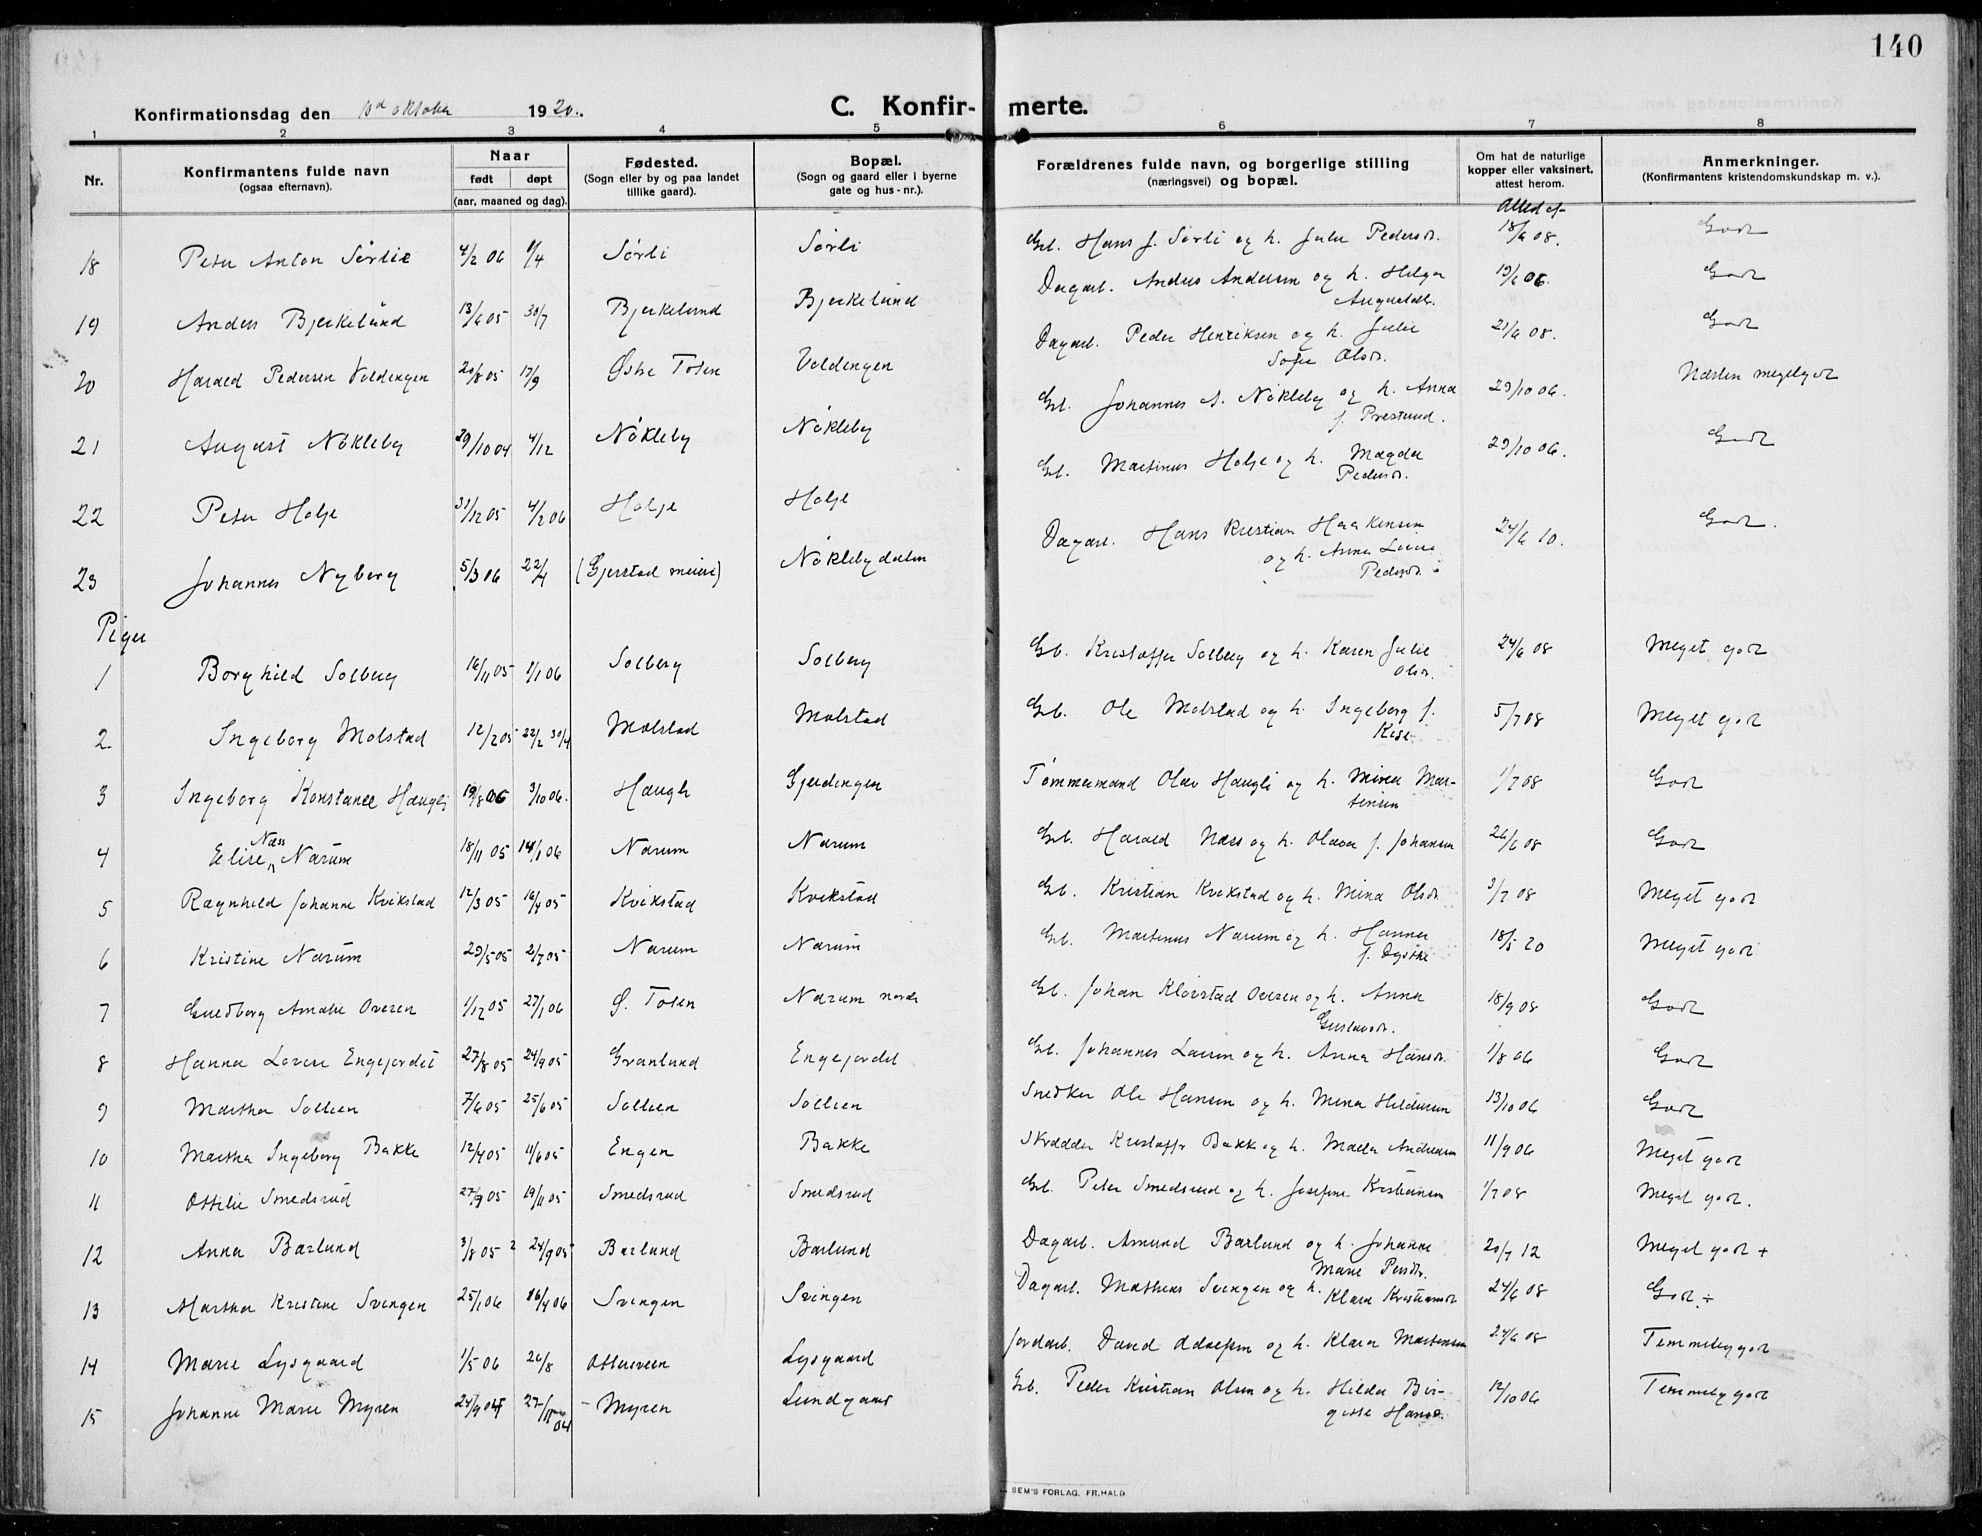 140
Konfirmationsdag den 10d oktober 1920.
C. Konfir- merte.
1 2 3 4 5 6 7 8
Nr.
Konfirmantens fulde navn
(ogsaa efternavn).
Naar
født døpt
(aar, maaned og dag).
Fødested.
(Sogn eller by og paa landet
tillike gaard).
Bopæl.
(Sogn og gaard eller i byerne
gate og hus-nr.).
Forældrenes fulde navn, og borgerlige stilling
(næringsvei) og bopæl.
Om hat de naturlige
kopper eller vaksinert,
attest herom.
Anmerkninger.
(Konfirmantens kristendomskundskap m. v.).
Attest af
18 Peter Anton Sørlie 4/2 06 1/4 Sørli Sørli Gb. Hans J. Sørli og h. Julie Pedersdr. 18/6 08. Godt
19 Anders Bjerkelund 13/6 05 30/7 Bjerkelund Bjerkelund Dagarb. Anders Andersen og h. Helga 19/6 06. Godt
Augustdtr.
20 Harald Pedersen Voldengen 20/8 05 17/9 Østre Toten Voldengen Dagarb. Peder Henriksen og h. Julie 21/6 08. Godt
Sofie Olsdr.
21 August Nøkleby 29/10 04 4/12 Nøkleby Nøkleby Gb. Johannes A. Nøkleby og h. Anna 29/10 06. Næsten megetgodt
f. Prestrund.
22 Peter Holje 31/12 05 4/2 06 Holje Holje Gb. Martinus Holje og h. Magda 29/10 06. Godt
Pedersdr.
23 Johannes Nyberg 5/3 06 22/4 (Gjerstad meieri) Nøklebydalen Dagarb. Hans Kristian Haakensen 24/6 10. Godt.
og h. Anna Lovise
Pedersdr.
Piger
1 Borghild Solberg 16/11 05 1/1 06 Solberg Solberg Gb. Kristoffer Solberg og h. Karen Julie 24/6 08 Meget godt
Olsdr.
2. Ingeborg Molstad 12/2 05 22/2 30/4 Molstad Molstad Gb. Ole Molstad og h. Ingeborg f. 5/7 08 Meget godt
Kise
3 Ingeborg Konstance Haugli 19/8 06 3/10 06. Haugli Gjerdingen Tømmermand Olav Haugli og h. Mina Mar- 1/7 08 Godt
tinsen
4 Elise Næss Narum 18/11 05 14/1 06 Narum Narum Gb. Harald Næss og h. Olava f. Johansen 26/6 08 Godt
5 Ragnhild Johanne Kvikstad 12/3 05 16/4 05 Kvikstad Kvikstad Gb. Kristian Kvikstad og h. Mina Olsdr. 3/7 08 Meget godt
6 Kristine Narum 29/5 05 2/7 05 Narum Narum Gb. Martinus Narum og h. Hanna 18/5 20 Meget godt
f. Dyste
7 Gudborg Amalie Overen 1/12 05 27/1 06 Ø. Toten Narum nordr Gb. Johan Klovstad Overen og h. Anna 18/9 08 Godt
Gustavsdr.
8 Hanna Lovise Engejordet 27/8 05 24/9 05 Granlund Engejordet Gb. Johannes Larsen og h. Anna Hansdr. 1/8 06 Godt
9 Martha Sollien 7/6 05 25/6 05 Sollien Sollien Snedker Ole Hansen og h. Mina Hildursen 13/10 06 Godt
10 Martha Ingeborg Bakke 12/4 05 11/6 05 Engen Bakke Skrædder Kristoffr Bakke og h. Matea Andersen 11/9 06 Meget godt
11 Ottilie Smedsrud 27/9 05 19/11 05 Smedsrud Smedsrud Gb. Peter Smedsrud og h. Josefine Kristiansen 1/7 08 Meget godt.
12 Anna Barlund 3/8 05 2 24/9 05 Barlund Barlund Dagarb. Amund Barlund og h. Johanne 20/7 12 Meget godt +
Marie Persdr.
13 Martha Kristine Svingen 25/1 06 16/4 06 Svingen Svingen Dagarb. Mathias Svingen og h. Klara Kristiansdr 24/6 08 Godt ÷
14 Marie Lysgaard 1/5 06 26/8 Ottersveen Lysgaard Jordarb. David Adolfsen og h. Klara Martinsen 24/6 08 Temmelig godt
15 Johanne Marie Myren 24/9 04 27/11 04 Myren Lundgaar Gb. Peder Kristian Olsen og h. Hilda Bir- 12/10 06 Temmelig godt
gitte Hansdr.
SEM'S FORLAG, FR.HALD